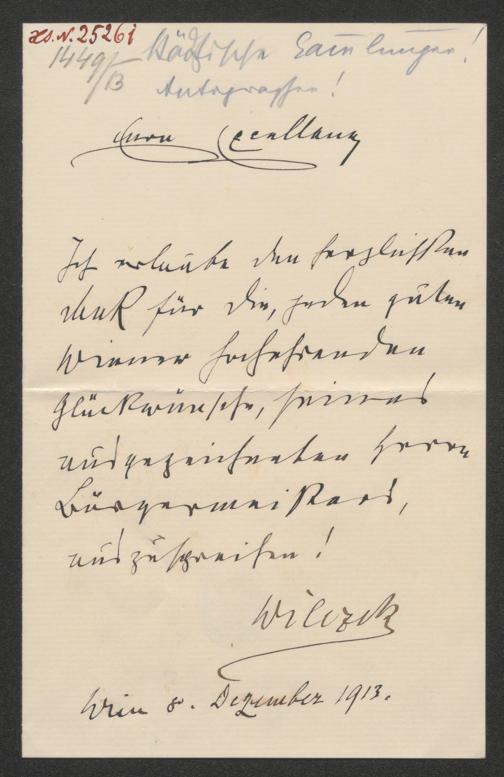 Hs. N. 25261
1449/B Städtische Sammlungen!
Autographen!
Euere Excellenz
Ich erlaube den herzlichsten
Dank für die, jeden guten
Wiener hochehrenden
Glückwünsche, seines
ausgezeichneten Herrn
Bürgermeisters,
auszusprechen!
Wilczek
Wien 8. Dezember 1913.